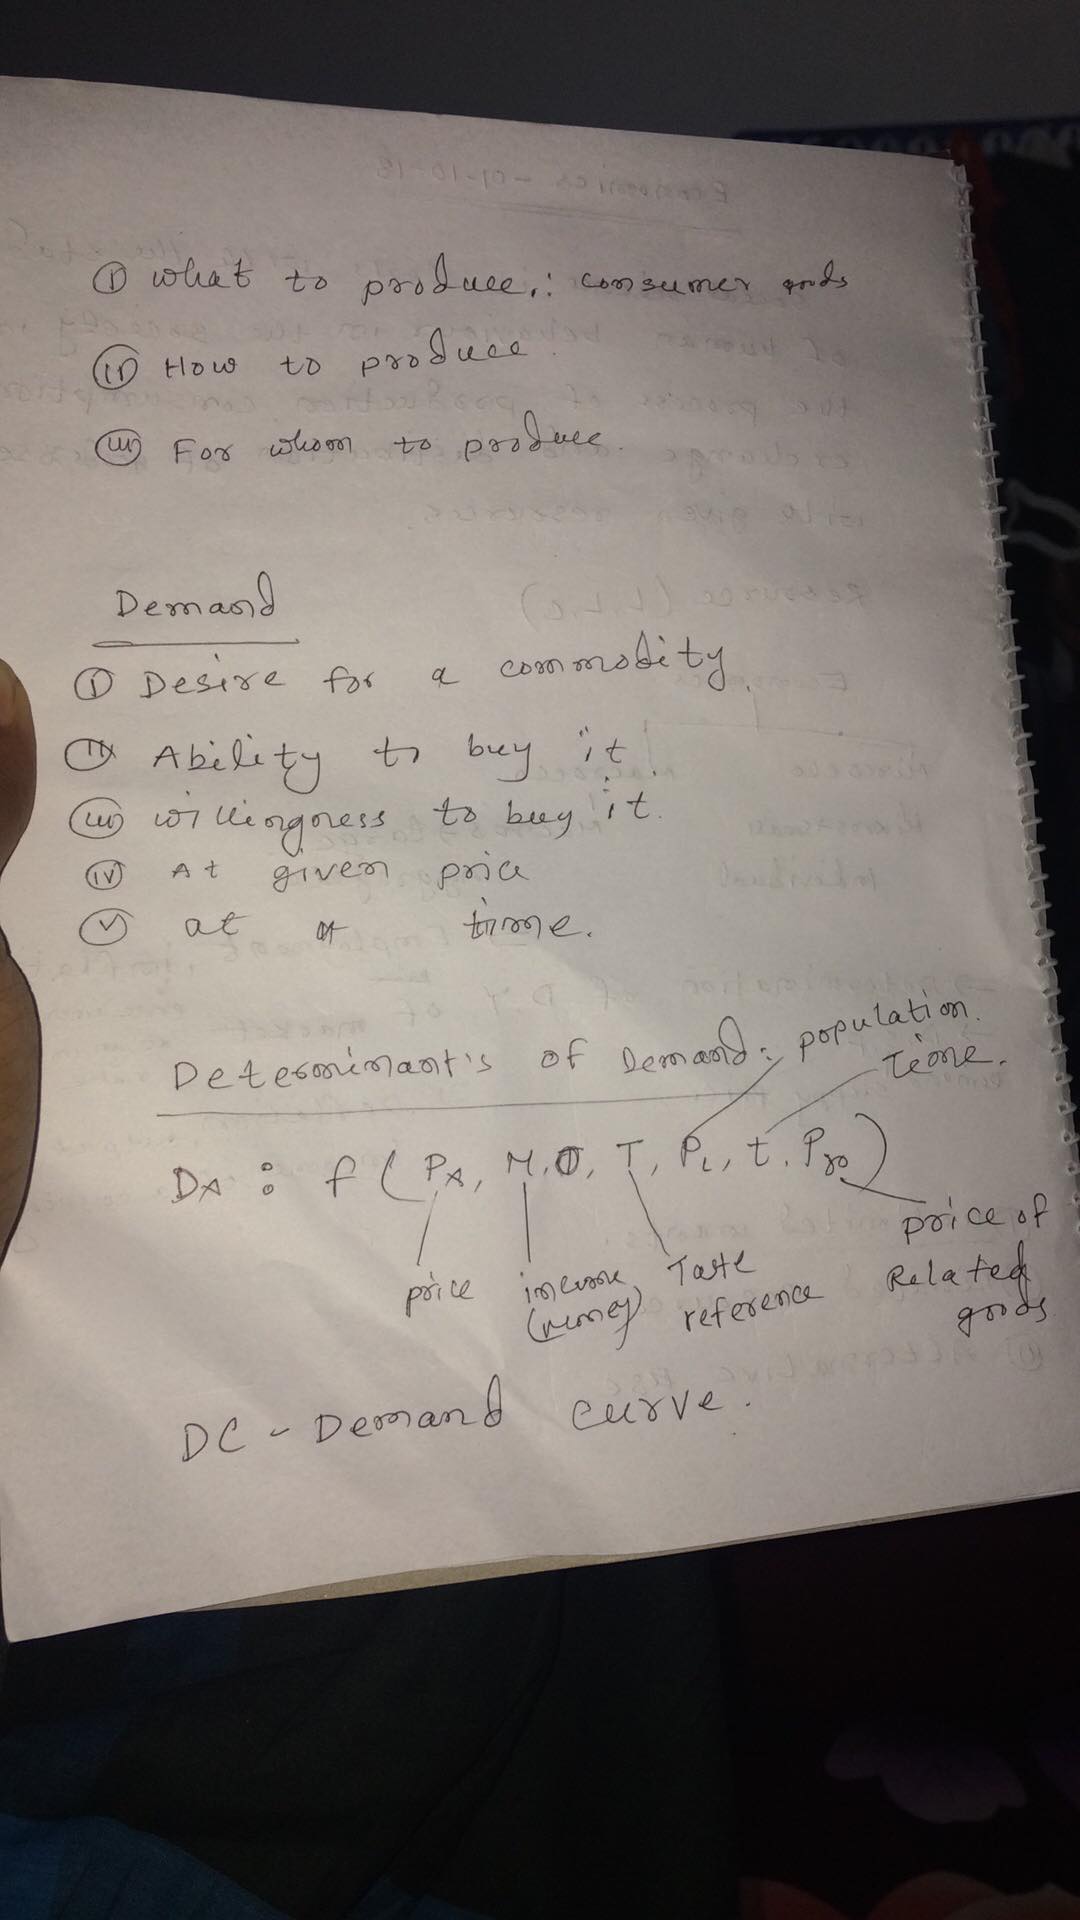 ① what to produce,: consumer goods
(ii) How to produce.
(iii) For whom to produce.
Demand
① Desire for a commodity.
(ii) Ability to buy it.
(iii) willingness to buy it.
(iv) At given price
(v) at time.
Determinant's of Demand: population.
Time.
DA : f ( PA, M, T, PL, t, Pro)
price income Taste price of
(money) reference Related
goods
DC - Demand curve.